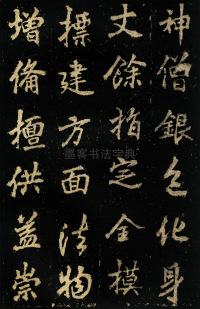 神僧銀色化身
丈餘指定全模
標建方面法物
增備檀供益崇
墨客书法字典